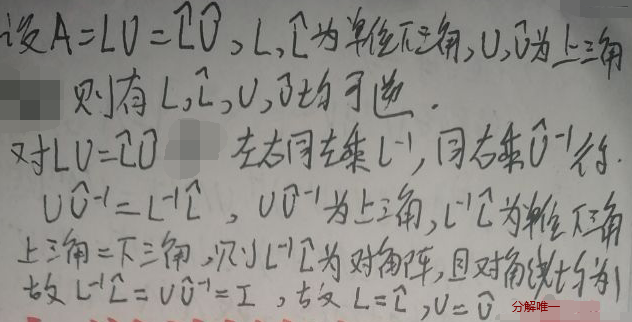 设A=LU=L̂Û，L，L̂为单位下三角，U，Û为上三角
则有L，L̂，U，Û均可逆．
对LU=L̂Û 左右同左乘L⁻¹，同右乘Û⁻¹得．
UÛ⁻¹=L⁻¹L̂，UÛ⁻¹为上三角，L⁻¹L̂为单位下三角
上三角=下三角，则L⁻¹L̂为对角阵，且对角线均为1
故L⁻¹L̂=UÛ⁻¹=I，故L=L̂，U=Û
分解唯一